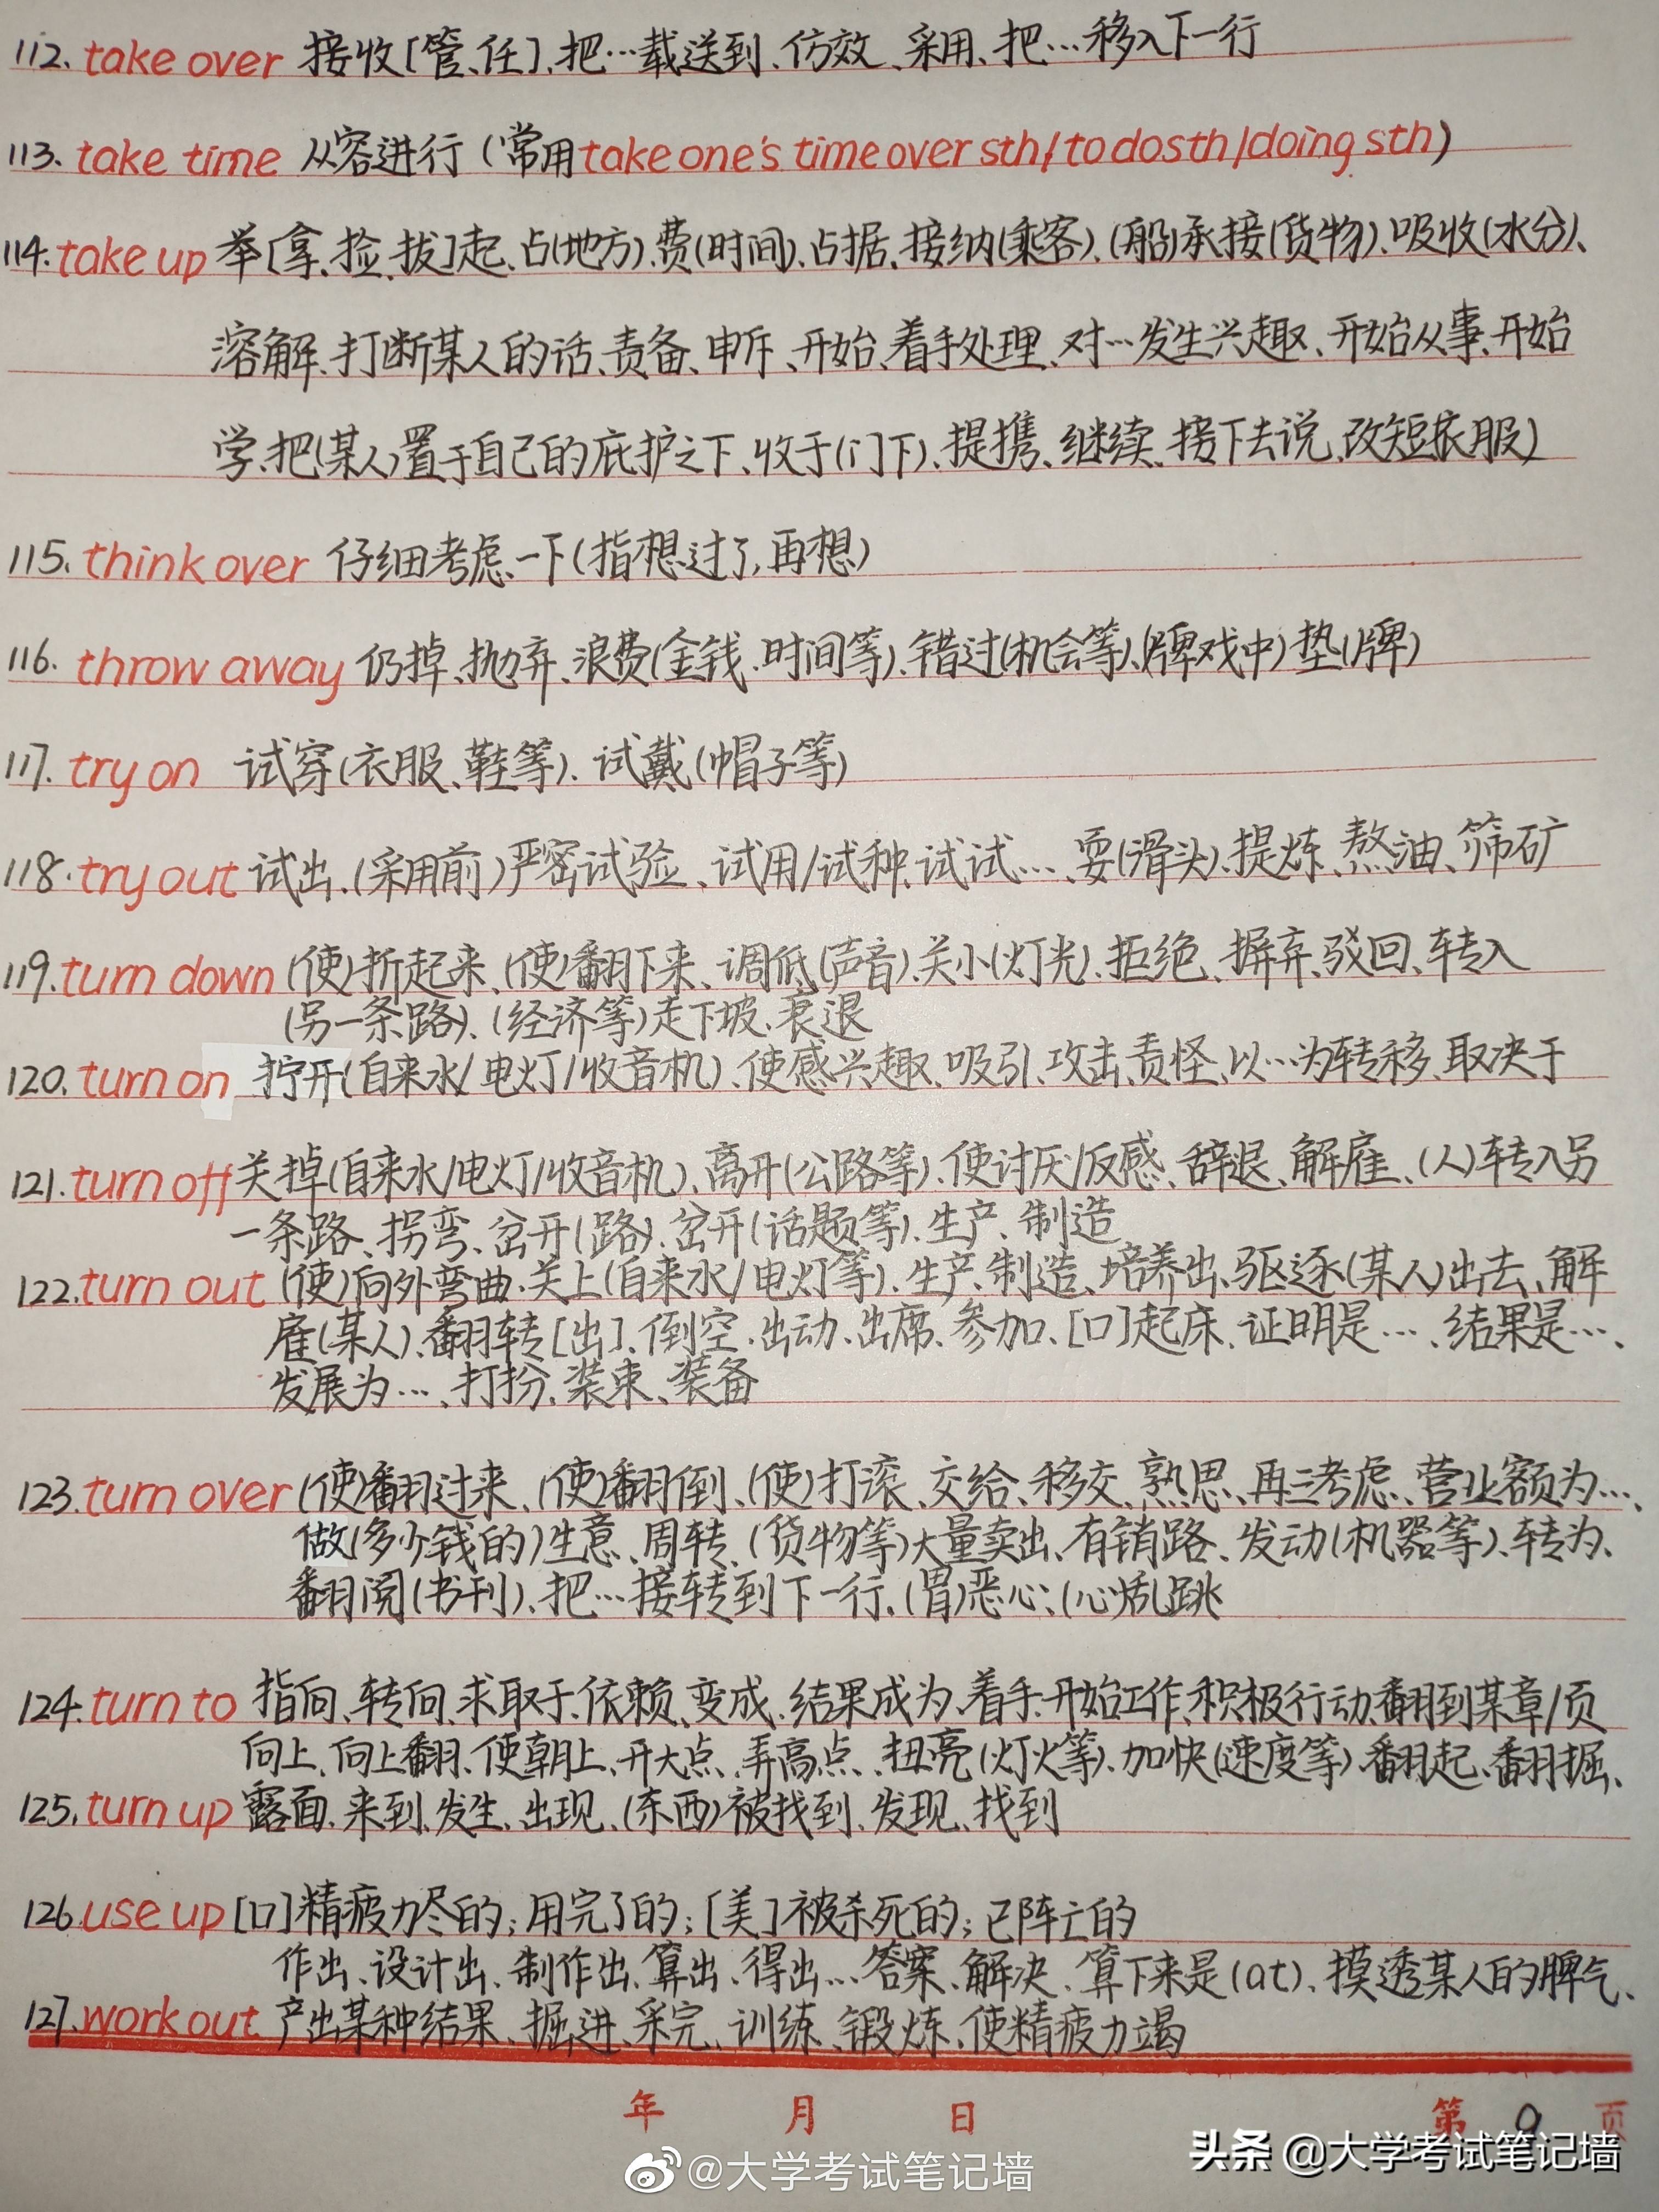 112. take over 接收[管、任]、把…载送到、仿效、采用、把…移入下一行
113. take time 从容进行(常用take one's time over sth/to do sth/doing sth)
114. take up 举[拿、捡、拔]起、占(地方)、费(时间)、占据、接纳(乘客)、(船)承接(货物)、吸收(水分)、
溶解、打断某人的话、责备、申斥、开始、着手处理、对…发生兴趣、开始从事、开始
学、把(某人)置于自己的庇护之下、收于(门下)、提携、继续、接下去说、改短衣服)
115. think over 仔细考虑一下(指想过了,再想)
116. throw away 仍掉、抛弃、浪费(金钱、时间等)、错过(机会等)、(牌戏中)垫(牌)
117. try on 试穿(衣服、鞋等)、试戴(帽子等)
118. try out 试出、(采用前)严密试验、试用/试种、试试…、耍(滑头)、提炼、熬油、筛矿
119. turn down (使)折起来、(使)翻下来、调低(声音)、关小(灯光)、拒绝、摒弃、驳回、转入
(另一条路)、(经济等)走下坡、衰退
120. turn on 拧开(自来水/电灯/收音机)、使感兴趣、吸引、攻击、责怪、以…为转移、取决于
121. turn off 关掉(自来水/电灯/收音机)、离开(公路等)、使讨厌/反感、辞退、解雇、(人)转入另
一条路、拐弯、岔开(路)、岔开(话题等)、生产、制造
122. turn out (使)向外弯曲、关上(自来水/电灯等)、生产、制造、培养出、驱逐(某人)出去、解
雇(某人)、翻转[出]、倒空、出动、出席、参加、[口]起床、证明是…、结果是…、
发展为…、打扮、装束、装备
123. turn over (使)翻过来、(使)翻倒、(使)打滚、交给、移交、熟思、再三考虑、营业额为…、
做(多少钱的)生意、周转、(货物等)大量卖出、有销路、发动(机器等)、转为、
翻阅(书刊)、把…接转到下一行、(胃)恶心、(心)乱跳
124. turn to 指向、转向、求取于、依赖、变成、结果成为、着手、开始工作、积极行动、翻到某章/页
向上、向上翻、使朝上、开大点、弄高点、扭亮(灯火等)、加快(速度等)、翻起、翻掘、
125. turn up 露面、来到、发生、出现、(东西)被找到、发现、找到
126. use up [口]精疲力尽的;用完了的;[美]被杀死的;已阵亡的
作出、设计出、制作出、算出、得出…答案、解决、算下来是(at)、摸透某人的脾气、
127. work out 产出某种结果、掘进、采完、训练、锻炼、使精疲力竭
年 月 日 第 9 页
@大学考试笔记墙
头条 @大学考试笔记墙